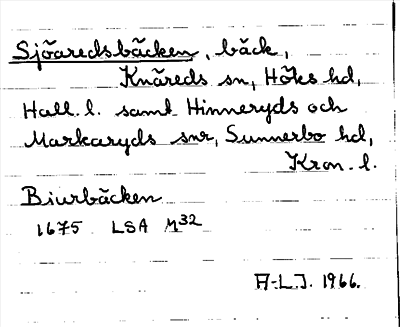 Sjöaredsbäcken, bäck,
Knäreds sn, Höks hd,
Hall. l. samt Hinneryds och
Markaryds snr, Sunnerbo hd,
Kron. l.
Biurbäcken
1675 LSA M32
A-L J. 1966.